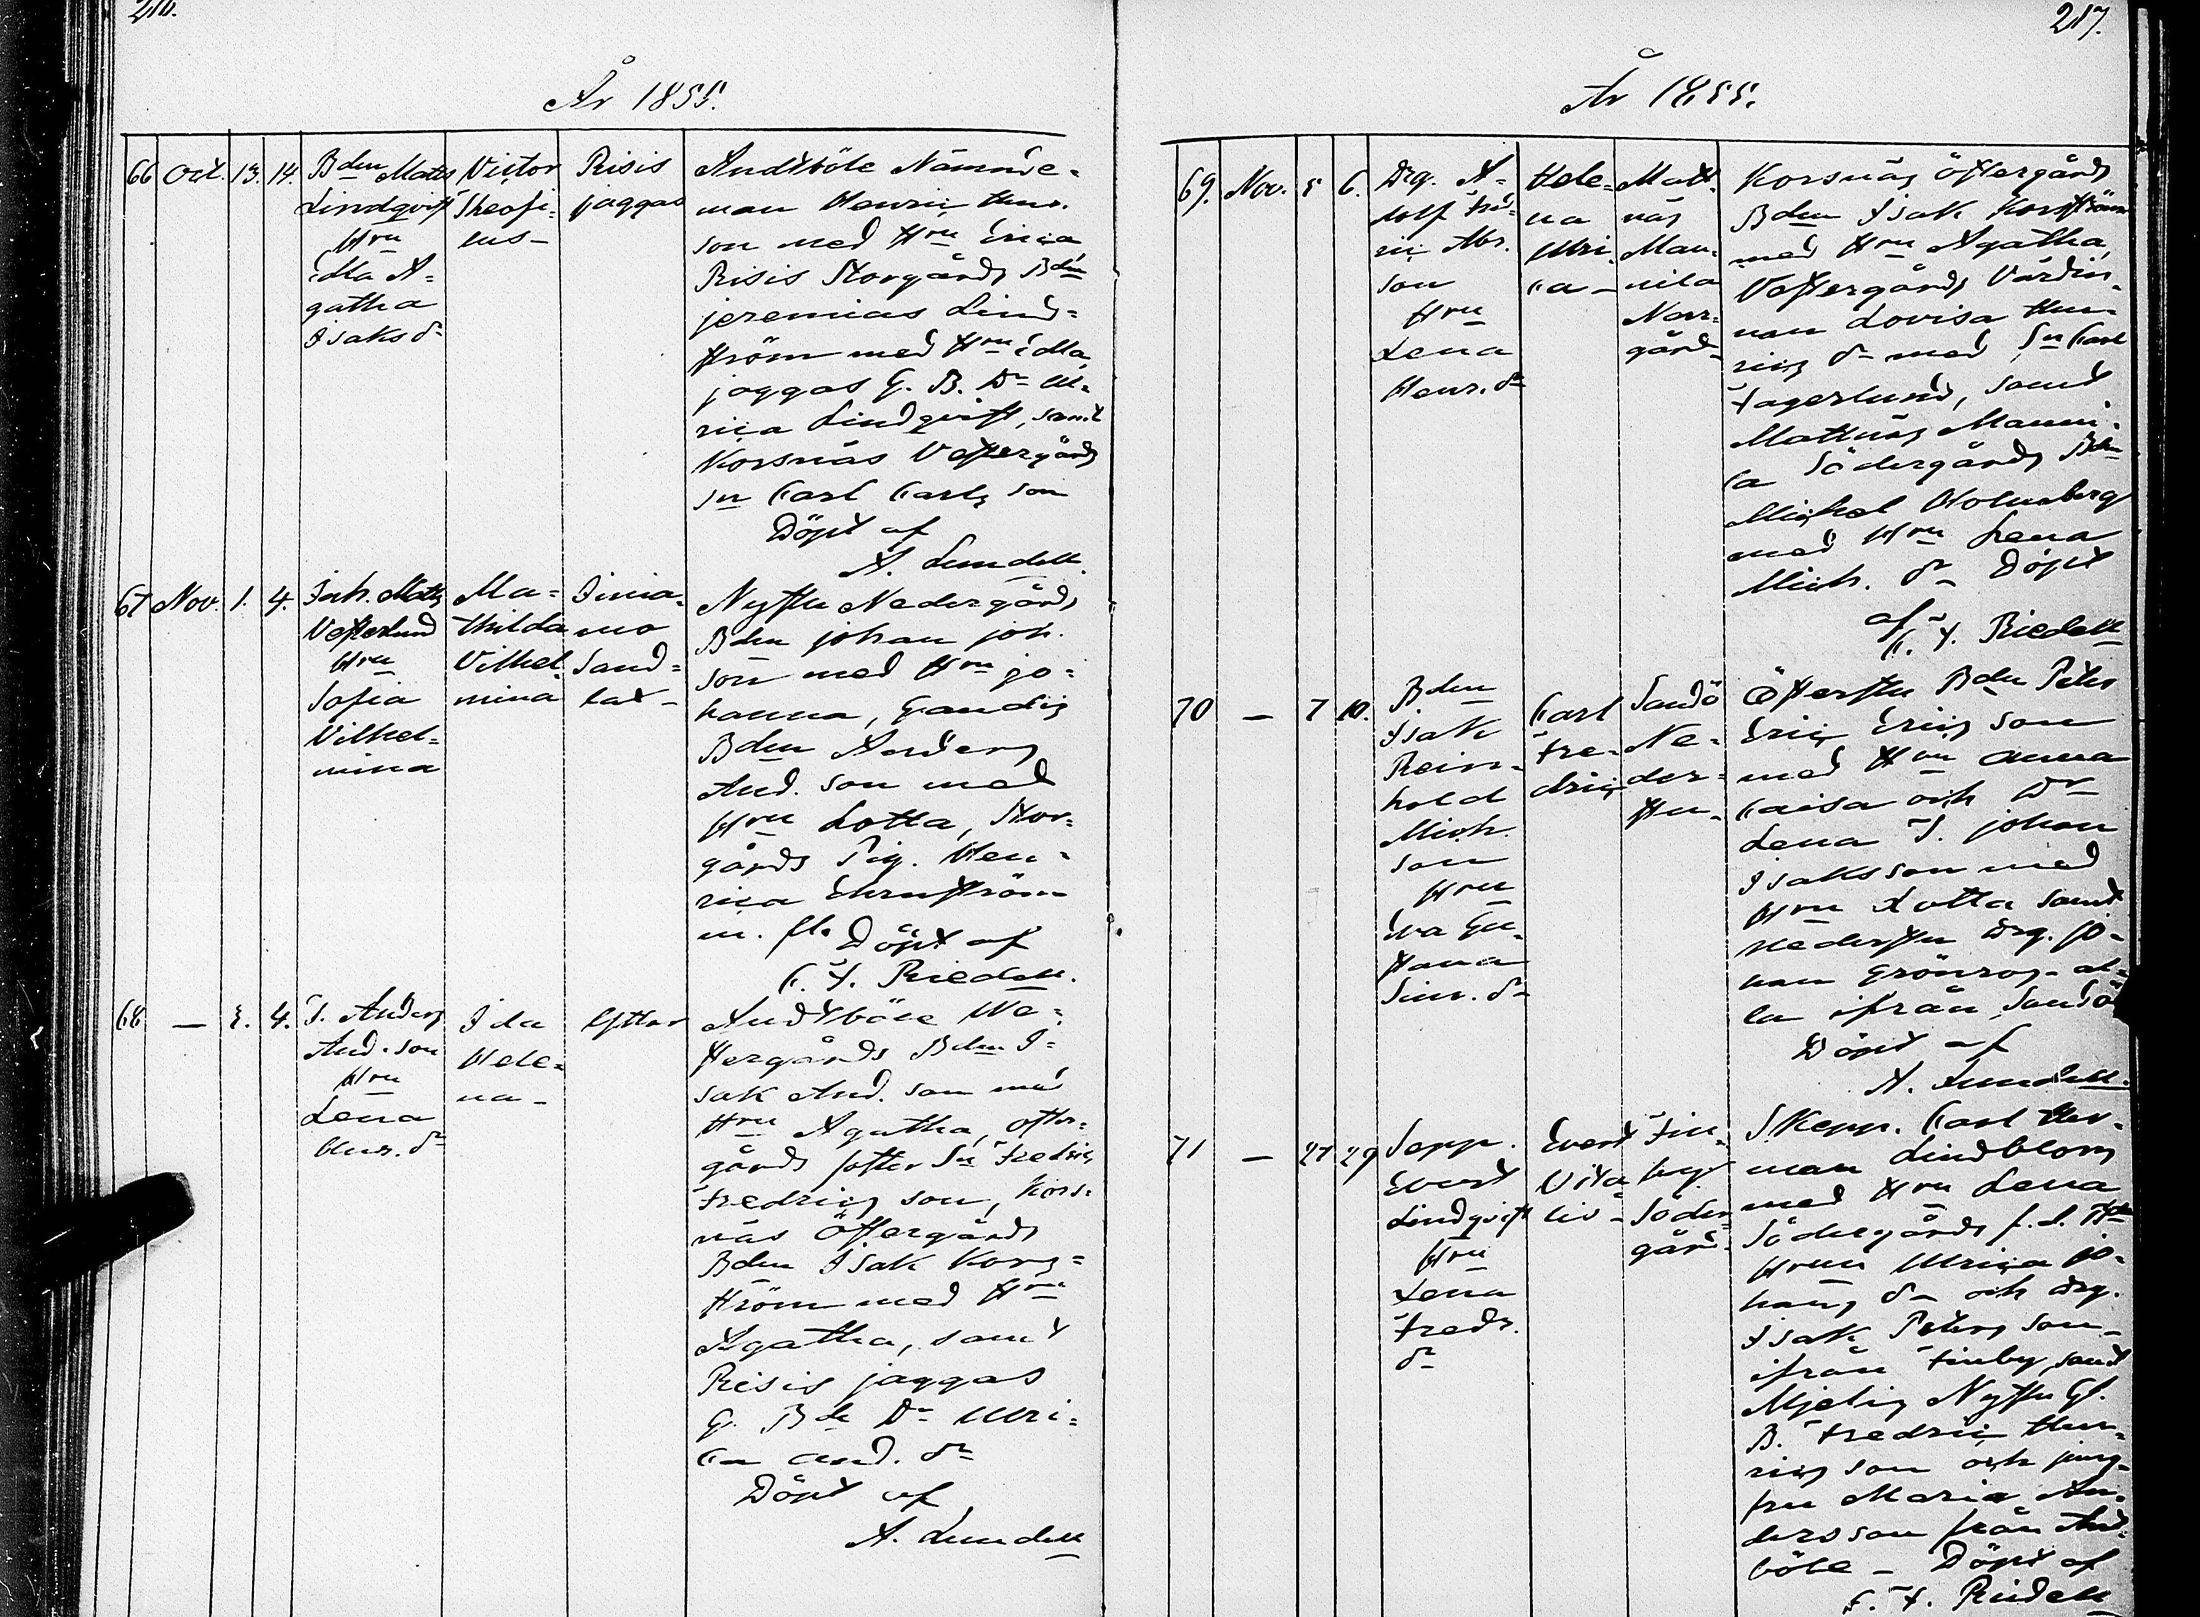 216.
År 1855.
66 Oct. 13. 14.
Bden Mats
Lindqvist
Hru
Edla A-
gatha
Isaks dr
Victor
Theofi-
lus-
Risis
jaggas
Andtböle Nämnde-
man Henric Henr.
son med Hru Erica
Risis Storgårds Bden
jeremias Lind-
ström med Hru Edla
jaggas G. B. Dr Ul-
rica Lindqvist, samt
Korsnäs Vestergårds
Sn Carl Carls son
Döpt af
A. Lundell.
67 Nov. 1. 4.
Inh. Mats
Vesterlund
Hru
Sofia
Vilhel-
mina
Ma-
thilda
Vilhel-
mina
Sand-
Nystu Nedergårds
Bden johan joh.
son med Hru jo-
hanna, Gandis
Bden Anders
And. son med
Hru Lotta, Stor-
gårds Pig. Hen-
rica Ehrnström
m. fl. Döpt af
C. F. Riedell.
68 — 3. 4.
T. Anders
And. son
Hru
Lena
Henr. dr
Ida
Hele-
na-
Andtböle We-
stergårds Bden I-
sak And. son med
Hru Agatha, öster-
gårds foster Sn Fredric
Fredrics son, Kors-
näs Östergårds
Bden Isak Kors-
ström med Hru
Agatha, samt
Risis jaggas
G. Bde Dr Ulri-
ca And. dr
Döpt af
A. Lundell
217.
År 1855.
69. Nov. 5 6.
Drg. A-
dolf Fred-
ric Abr.
son
Hru
Lena
Henr. dr
Hele-
na
Ulri-
ca-
Matt-
näs
Man-
nila
Norr-
gård-
Korsnäs östergårds
Bden Isak Korsström
med Hru Agatha,
Vestergårds Värdin-
nan Lovisa Hen-
rics dr med Sn Carl
Fagerlund, samt
Mattnäs Manni-
la Södergårds Bden
Michel Holmberg
med Hru Lena
Mich. dr Döpt
af
C. F. Riedell
70 — 7 10.
Bden
Isak
Rein-
hold
Mich.
son
Hru
Eva Gu-
stava
Sim. dr
Carl
Fre-
dric
Sandö
Ne-
der-
stu-
Öfterstu Bden Peter
Eric Erics son
med Hru Anna
Caisa och Dr
Lena T. johan
Isaks son med
Hru Lotta samt
Nederstu Drg. jo-
han Grönros- al-
la ifrån Sandö
Döpt af
A. Lundell.
71 — 27 29
Sepp.
Evert
Lindqvist
Hru
Lena
Fredr.
dr
Evert
Vita-
lis-
Fin-
by
Söder-
gård-
Skepp. Carl Her-
man Lindblom
med Hru Lena
Södergårds
Hrun Ulrica jo-
hans dr och Drg.
Isak Peters son-
ifrån Finby, samt
Mjelis Nystu Gl.
B. Fredric Hen-
rics son och jung-
fru Maria An-
dersson från And-
böle - Döpt af
C. F. Riedell